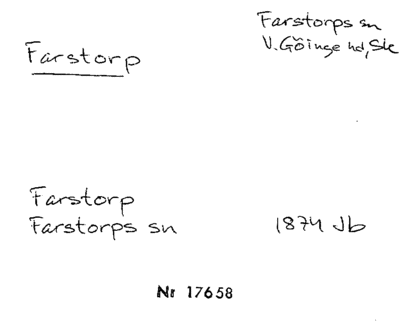 Farstorp
Farstorps sn
V. Göinge hd, Sk
Farstorp
Farstorps sn
1874 Jb
Nr 17658